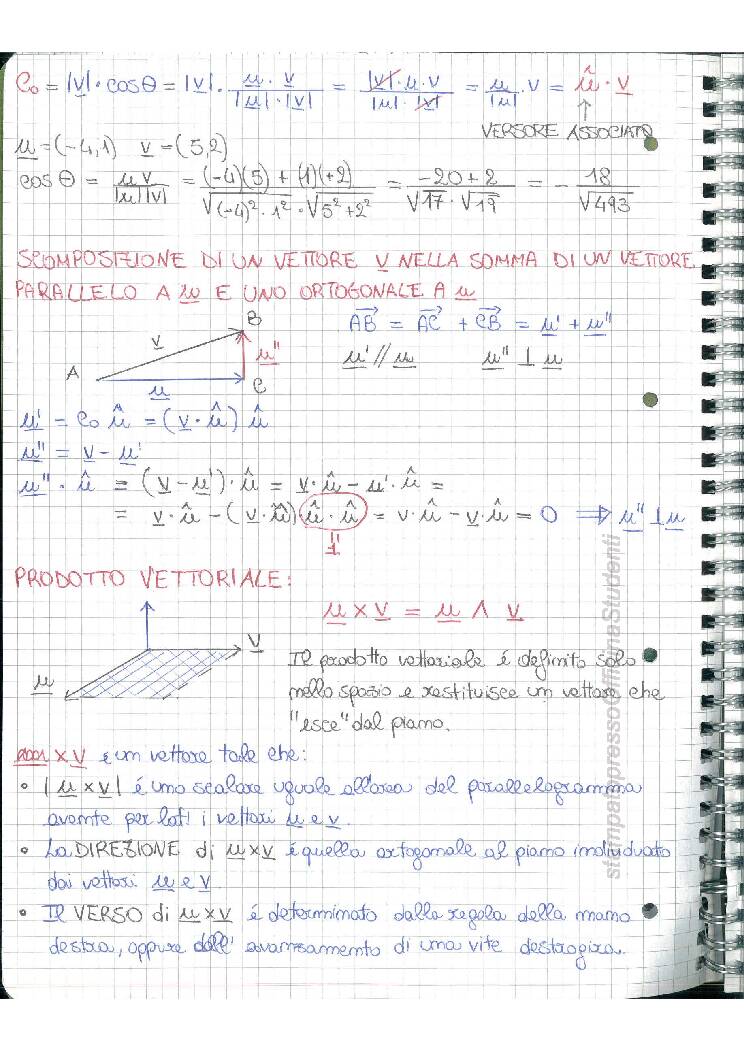 C₀ = |v|·cosθ = |v|· u · v / |u|·|v| = |v|·u·v / |u|·|v| = u/|u| · v = û · v
↑
VERSORE ASSOCIATO
u = (-4,1) v = (5,2)
cos θ = u v / |u||v| = (-4)(5) + (1)(+2) / √(-4)²·1² · √5²+2² = -20+2 / √17 · √19 = - 18 / √493
SCOMPOSIZIONE DI UN VETTORE v NELLA SOMMA DI UN VETTORE
PARALLELO A u E UNO ORTOGONALE A u
A v B u" u C
AB = AC + CB = u' + u"
u' // u u" ⊥ u
u' = C₀ û = (v · û) û
u" = v - u'
u" · û = (v - u') · û = v · û - u' · û =
= v · û - (v · û) · û · û = v · û - v · û = 0 ⟹ u" ⊥ u
1
PRODOTTO VETTORIALE:
u × v = u ∧ v
u v
Il prodotto vettoriale é definito solo
nello spazio e restituisce un vettore che
"esce" dal piano.
× v é un vettore tale che:
• |u × v| é uno scalare uguale all'area del parallelogramma
avente per lati i vettori u e v.
• La DIREZIONE di u × v é quella ortogonale al piano individuato
dai vettori u e v
• Il VERSO di u × v é determinato dalla regola della mano
destra, oppure dall' avanzamento di una vite destrogira.
stampatopressoOfficinaStudenti